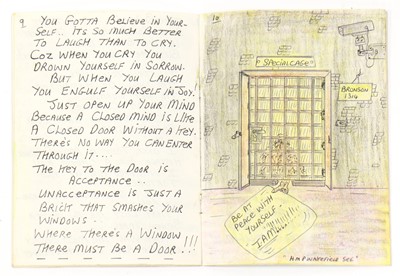 9
YOU GOTTA BELIEVE IN YOUR-
SELF.. ITS SO MUCH BETTER
TO LAUGH THAN TO CRY.
COZ WHEN YOU CRY YOU
DROWN YOURSELF IN SORROW.
BUT WHEN YOU LAUGH
YOU ENGULF YOURSELF IN JOY.
JUST OPEN UP YOUR MIND
BECAUSE A CLOSED MIND IS LIKE
A CLOSED DOOR WITHOUT A KEY.
THERE'S NO WAY YOU CAN ENTER
THROUGH IT....
THE KEY TO THE DOOR IS
ACCEPTANCE...
UNACCEPTANCE IS JUST A
BRICK THAT SMASHES YOUR
WINDOWS.
WHERE THERE'S A WINDOW
THERE MUST BE A DOOR!!!
10
"SPECIAL CAGE"
BRONSON
1314
BE AT
PEACE WITH
YOURSELF.
I AM
H.M.P. WAKEFIELD